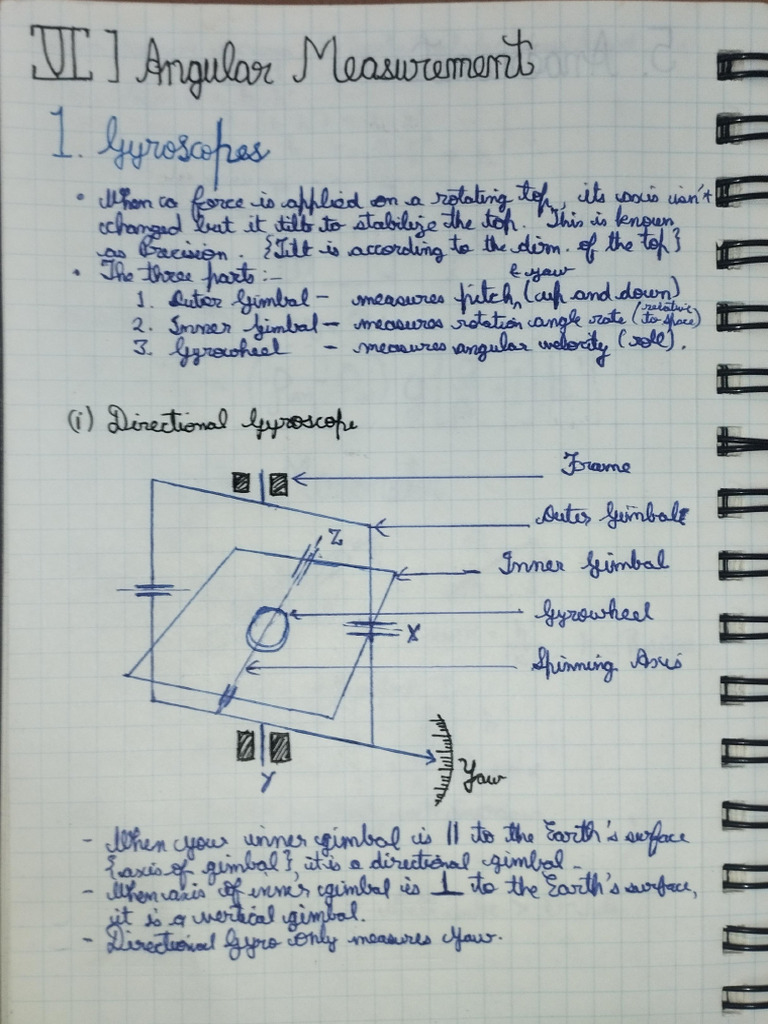 VI] Angular Measurement
1. Gyroscopes
• When a force is applied on a rotating top, its axis isn't
changed but it tilts to stabilize the top. This is known
as Precision. {Tilt is according to the dirn. of the top}
• The three parts :-
& yaw
1. Outer Gimbal - measures pitch, (up and down)
2. Inner Gimbal - measures rotation angle rate (relative to space)
3. Gyrowheel - measures angular velocity (roll).
(i) Directional Gyroscope
Frame
Outer Gimbal
Z
Inner Gimbal
Gyrowheel
X
Spinning Axis
Yaw
Y
- When your inner gimbal is || to the Earth's surface
{axis of gimbal}, it is a directional gimbal.
- When axis of inner gimbal is ⊥ to the Earth's surface,
it is a vertical gimbal.
- Directional Gyro only measures Yaw.